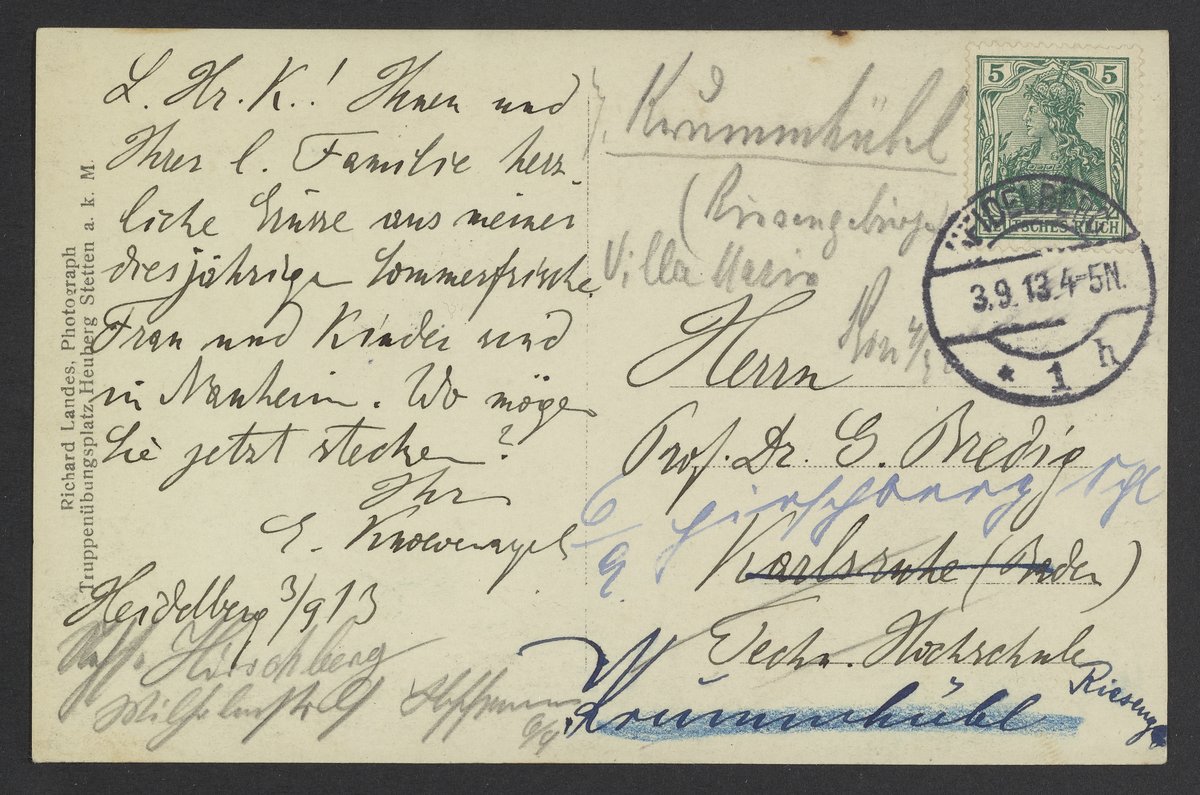 L. Hr. K.! Ihnen und
Ihrer l. Familie herz-
liche Grüsse aus meiner
diesjährigen Sommerfrische.
Frau und Kinder sind
in Nauheim. Wo mögen
Sie jetzt stecken?
Ihr
E. Knoevenagel
Heidelberg 3/9 13
Hirschberg
Richard Landes, Photograph
Truppenübungsplatz Heuberg Stetten a. k. M.
Krummhübel
(Riesengebirge)
Villa Maria
5 5
DEUTSCHES REICH
HEIDELBERG
3.9.13.4-5N.
* 1 h
Herrn
Prof. Dr. G. Bredig
6/9 Hirschberg Schl
Karlsruhe (Baden)
Techn. Hochschule
Krummhübel Riesengb